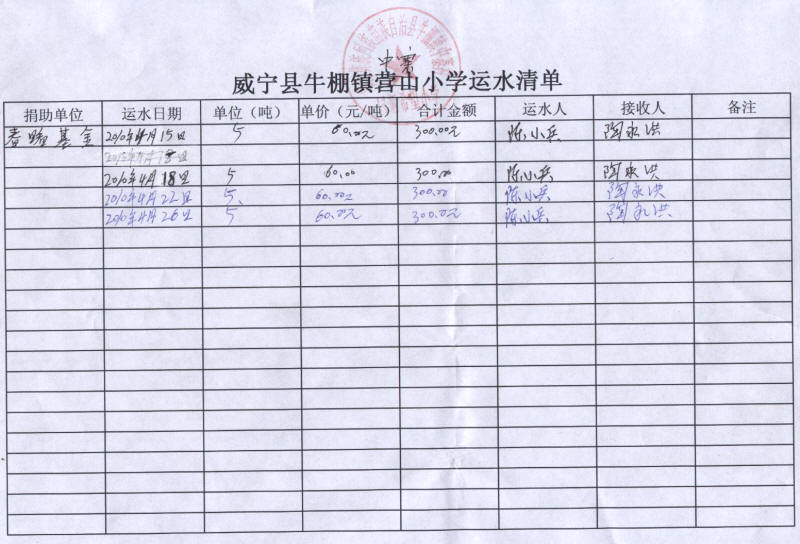 中寨
威宁县牛棚镇营山小学运水清单
捐助单位 运水日期 单位（吨） 单价（元/吨） 合计金额 运水人 接收人 备注
春晖基金 2010年4月15日 5 60.00元 300.00元 陈小兵 陶永洪
2010年4月18日
2010年4月18日 5 60.00 300.00 陈小兵 陶永洪
2010年4月22日 5 60.00元 300.00元 陈小兵 陶永洪
2010年4月26日 5 60.00元 300.00元 陈小兵 陶永洪